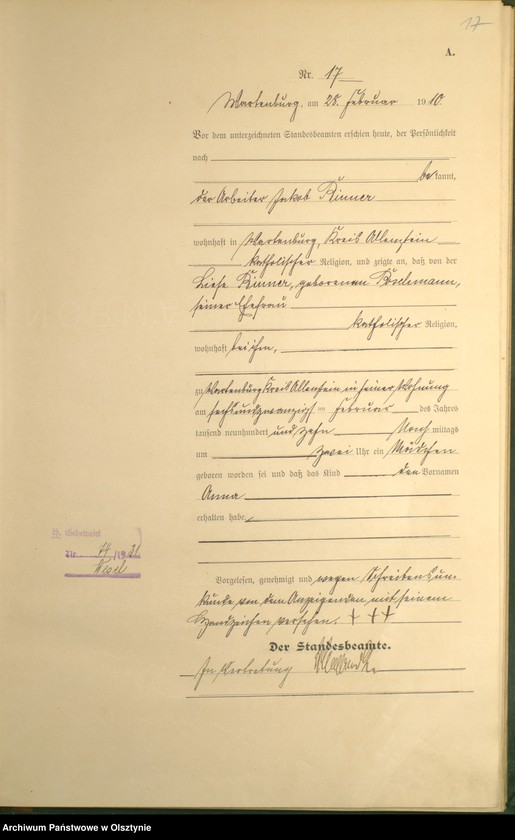 17
A.
Nr. 17
Wartenburg, am 28. Februar 1910.
Vor dem unterzeichneten Standesbeamten erschien heute, der Persönlichkeit
nach
bekannt,
der Arbeiter Jakob Kinner
wohnhaft in Wartenburg, Kreis Allenstein
katholischer Religion, und zeigte an, daß von der
Kinner, geborenen
seiner Ehefrau
katholischer Religion,
wohnhaft bei ihm,
zu Wartenburg Kreis Allenstein in seiner Wohnung
am sechsundzwanzigsten Februar des Jahres
tausend neunhundert und zehn Nachmittags
um zwei Uhr ein Mädchen
geboren worden sei und daß das Kind den Vornamen
Anna
erhalten habe.
Nr. /19
Wesel
Vorgelesen, genehmigt und wegen Schreibensun-
kunde von dem Anzeigenden mit seinem
Handzeichen versehen. + + +
Der Standesbeamte.
In Vertretung
Archiwum Państwowe w Olsztynie